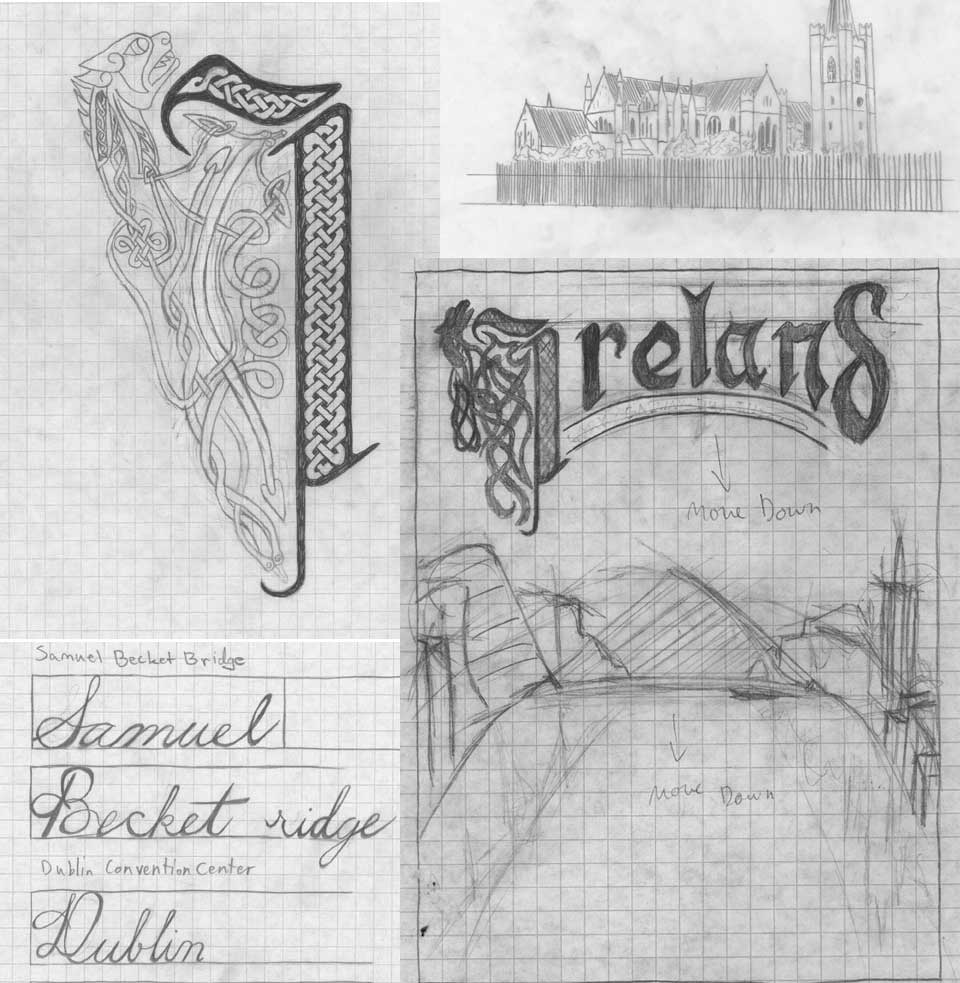 Ireland
Move Down
Move Down
Samuel Becket Bridge
Samuel
Becket ridge
Dublin Convention Center
Dublin